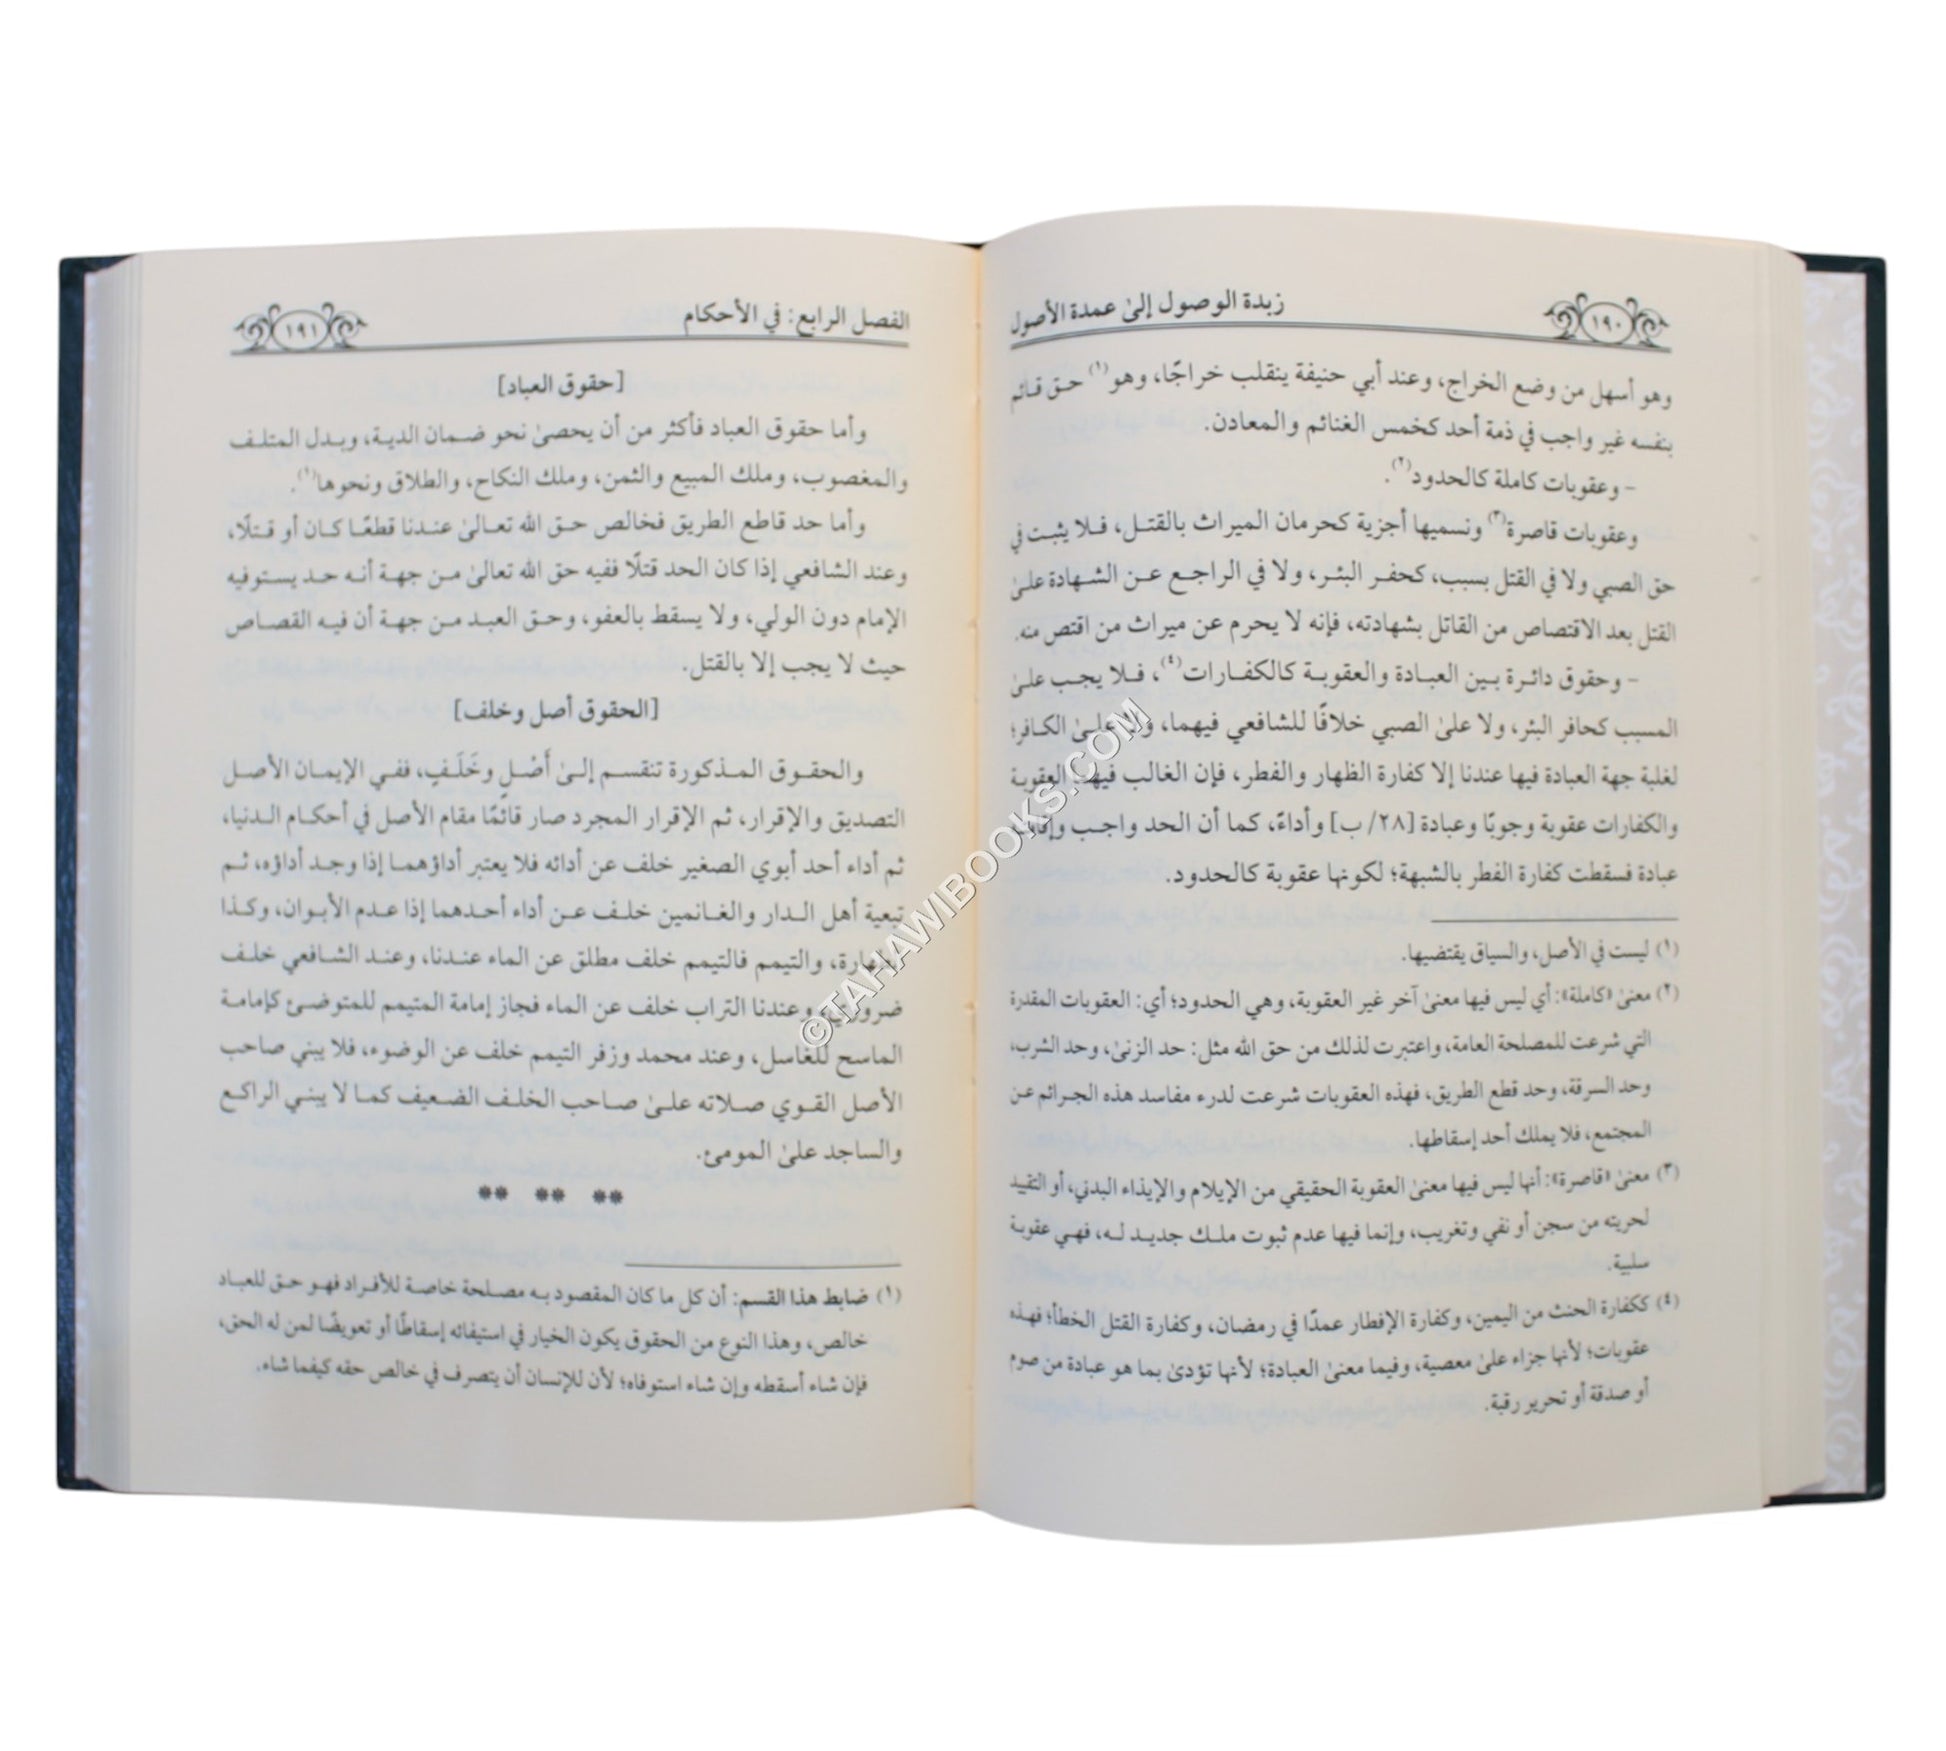 زبدة الوصول إلى عمدة الأصول
١٩٠
وهو أسهل من وضع الخراج، وعند أبي حنيفة ينقلب خراجًا، وهو(١) حق قائم
بنفسه غير واجب في ذمة أحد كخمس الغنائم والمعادن.
- وعقوبات كاملة كالحدود(٢).
وعقوبات قاصرة(٣) ونسميها أجزية كحرمان الميراث بالقتل، فلا يثبت في
حق الصبي ولا في القتل بسبب، كحفر البئر، ولا في الراجع عن الشهادة علىٰ
القتل بعد الاقتصاص من القاتل بشهادته، فإنه لا يحرم عن ميراث من اقتص منه.
- وحقوق دائرة بين العبادة والعقوبة كالكفارات(٤)، فلا يجب علىٰ
المسبب كحافر البئر، ولا علىٰ الصبي خلافًا للشافعي فيهما، ولا علىٰ الكافر؛
لغلبة جهة العبادة فيها عندنا إلا كفارة الظهار والفطر، فإن الغالب فيها العقوبة
والكفارات عقوبة وجوبًا وعبادة [٢٨/ ب] وأداءً، كما أن الحد واجب وإقامته
عبادة فسقطت كفارة الفطر بالشبهة؛ لكونها عقوبة كالحدود.
(١) ليست في الأصل، والسياق يقتضيها.
(٢) معنىٰ «كاملة»: أي ليس فيها معنىٰ آخر غير العقوبة، وهي الحدود؛ أي: العقوبات المقدرة
التي شرعت للمصلحة العامة، واعتبرت لذلك من حق الله مثل: حد الزنىٰ، وحد الشرب،
وحد السرقة، وحد قطع الطريق، فهذه العقوبات شرعت لدرء مفاسد هذه الجرائم عن
المجتمع، فلا يملك أحد إسقاطها.
(٣) معنىٰ «قاصرة»: أنها ليس فيها معنىٰ العقوبة الحقيقي من الإيلام والإيذاء البدني، أو التقييد
لحريته من سجن أو نفي وتغريب، وإنما فيها عدم ثبوت ملك جديد له، فهي عقوبة
سلبية.
(٤) ككفارة الحنث من اليمين، وكفارة الإفطار عمدًا في رمضان، وكفارة القتل الخطأ؛ فهذه
عقوبات؛ لأنها جزاء علىٰ معصية، وفيما معنىٰ العبادة؛ لأنها تؤدىٰ بما هو عبادة من صوم
أو صدقة أو تحرير رقبة.
الفصل الرابع: في الأحكام
١٩١
[حقوق العباد]
وأما حقوق العباد فأكثر من أن يحصىٰ نحو ضمان الدية، وبدل المتلف
والمغصوب، وملك المبيع والثمن، وملك النكاح، والطلاق ونحوها(١).
وأما حد قاطع الطريق فخالص حق الله تعالىٰ عندنا قطعًا كان أو قتلًا،
وعند الشافعي إذا كان الحد قتلًا ففيه حق الله تعالىٰ من جهة أنه حد يستوفيه
الإمام دون الولي، ولا يسقط بالعفو، وحق العبد من جهة أن فيه القصاص
حيث لا يجب إلا بالقتل.
[الحقوق أصل وخلف]
والحقوق المذكورة تنقسم إلىٰ أَصْلٍ وخَلَفٍ، ففي الإيمان الأصل
التصديق والإقرار، ثم الإقرار المجرد صار قائمًا مقام الأصل في أحكام الدنيا،
ثم أداء أحد أبوي الصغير خلف عن أدائه فلا يعتبر أداؤهما إذا وجد أداؤه، ثم
تبعية أهل الدار والغانمين خلف عن أداء أحدهما إذا عدم الأبوان، وكذا
الطهارة، والتيمم فالتيمم خلف مطلق عن الماء عندنا، وعند الشافعي خلف
ضروري، وعندنا التراب خلف عن الماء فجاز إمامة المتيمم للمتوضئ كإمامة
الماسح للغاسل، وعند محمد وزفر التيمم خلف عن الوضوء، فلا يبني صاحب
الأصل القوي صلاته علىٰ صاحب الخلف الضعيف كما لا يبني الراكع
والساجد علىٰ المومئ.
** ** **
(١) ضابط هذا القسم: أن كل ما كان المقصود به مصلحة خاصة للأفراد فهو حق للعباد
خالص، وهذا النوع من الحقوق يكون الخيار في استيفائه إسقاطًا أو تعويضًا لمن له الحق،
فإن شاء أسقطه وإن شاء استوفاه؛ لأن للإنسان أن يتصرف في خالص حقه كيفما شاء.
©TAHAWIBOOKS.COM